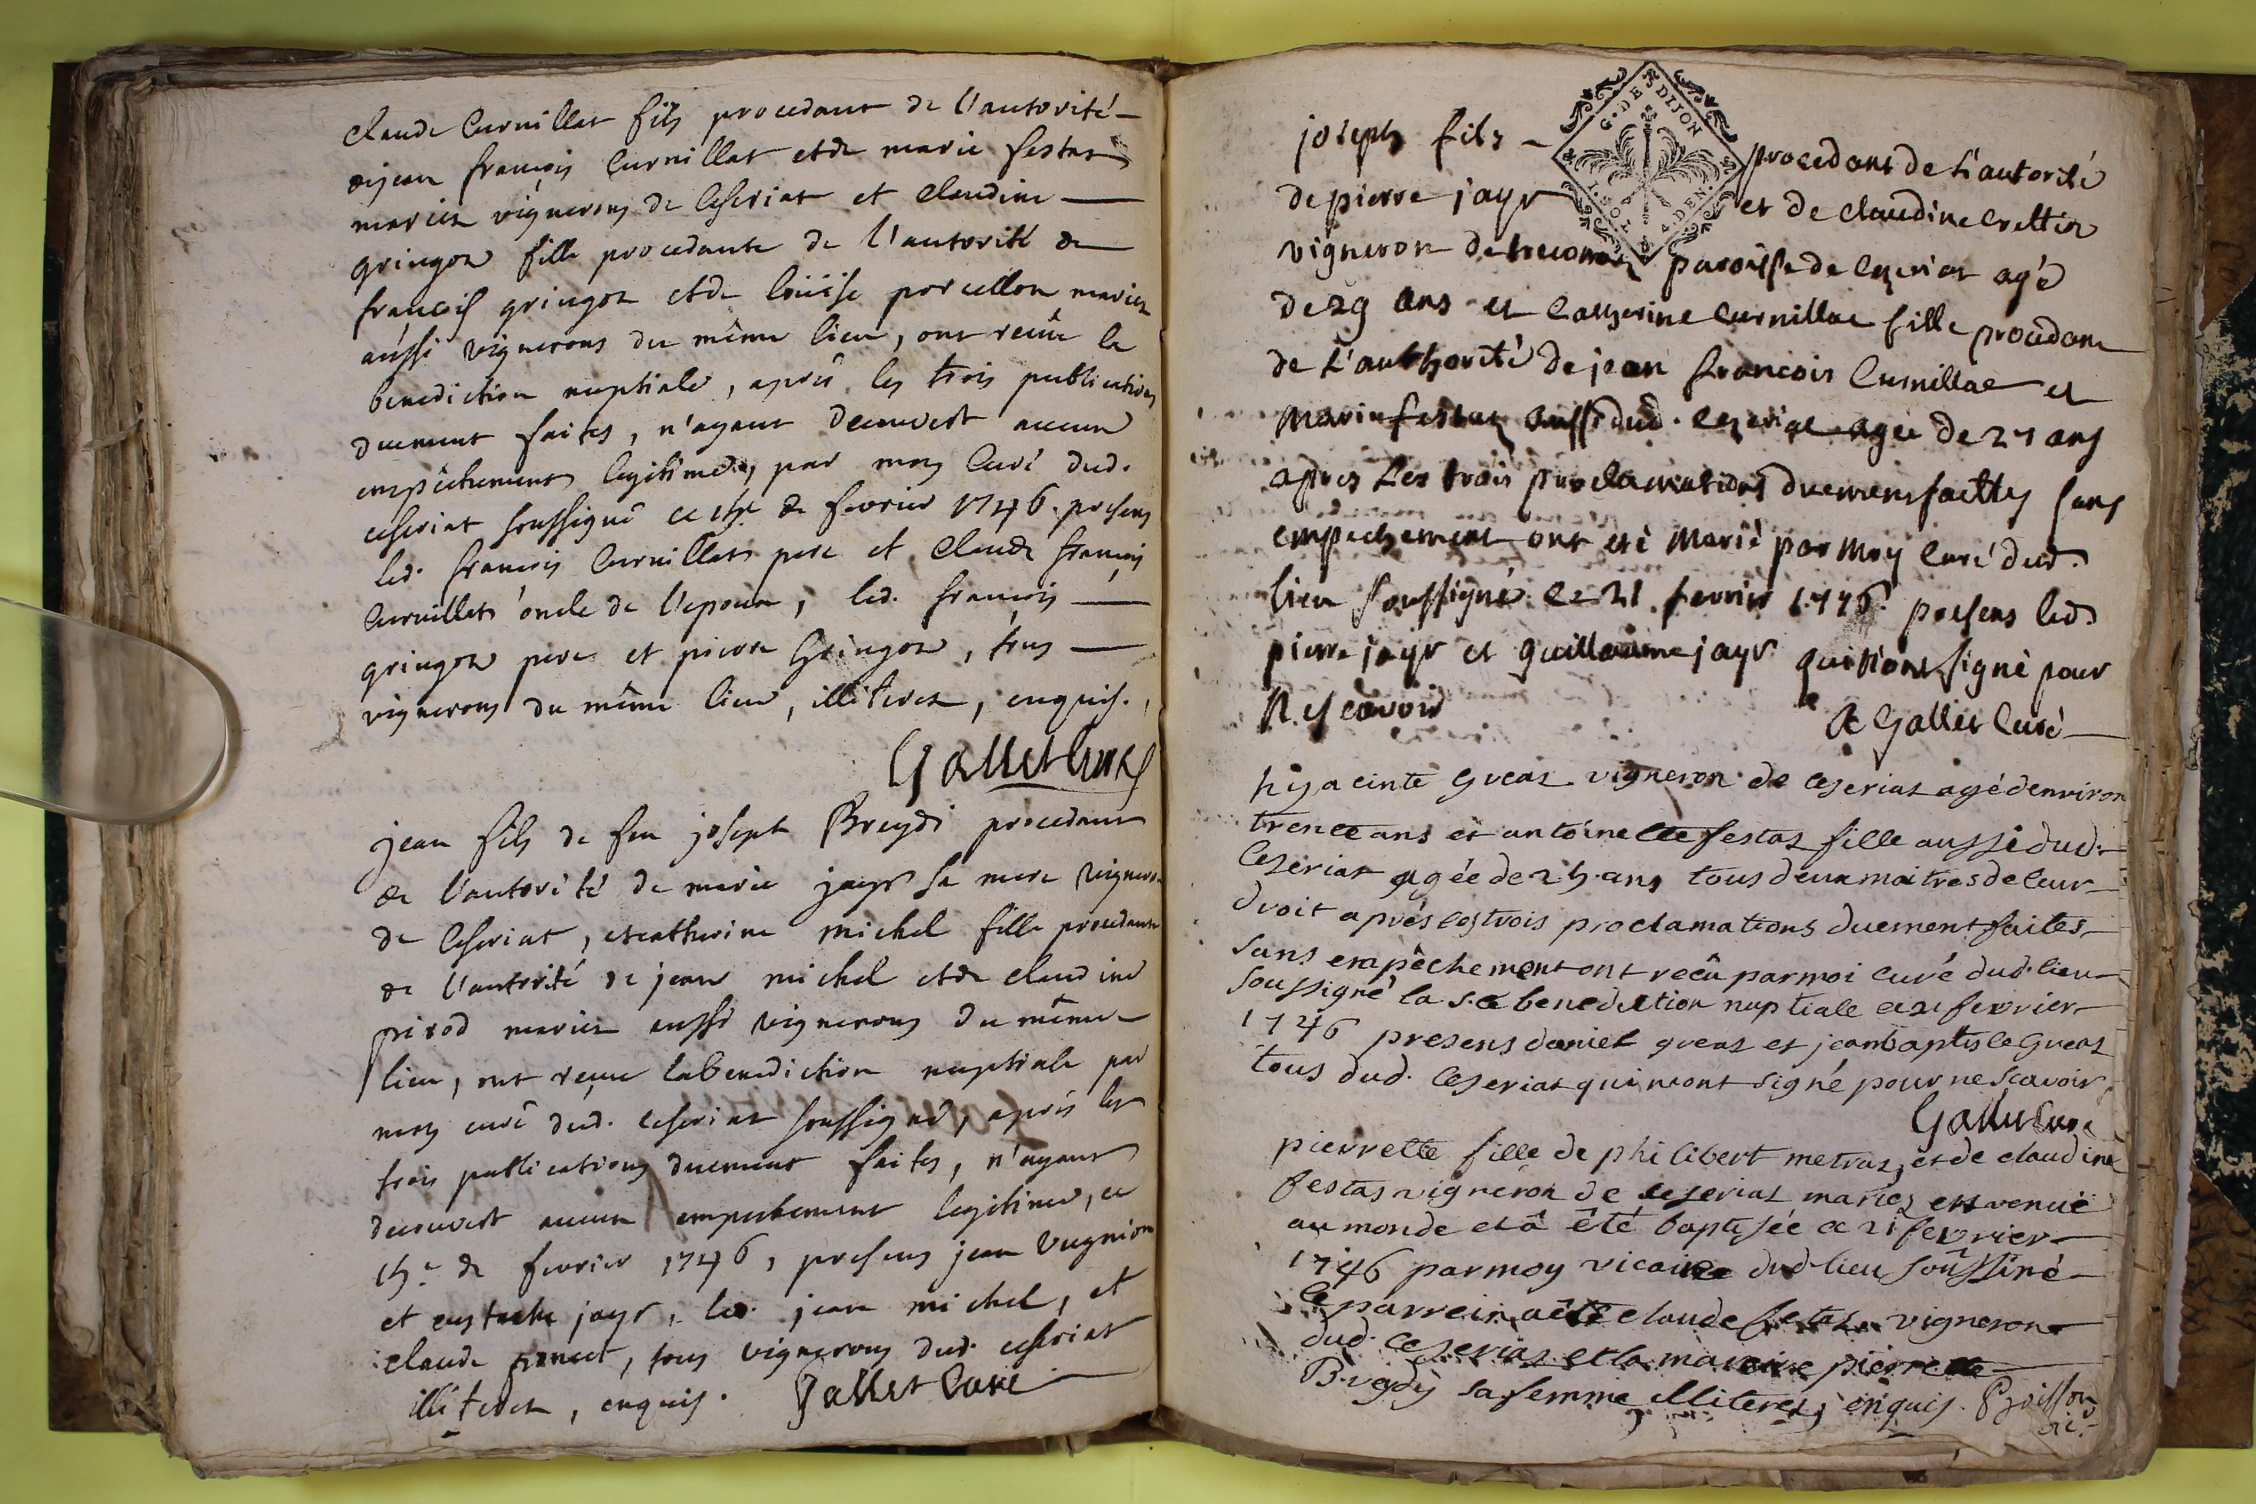 claude Curnillat fils procedant de l'autorité
de jean françois Curnillat et de marie festas
mariez vignerons de Ceseriat et claudine
gringoz fille procedante de l'autorité de
françois gringoz et de loüise porcellon mariez
aussi vignerons du même lieu, ont reçüe la
benediction nuptiale, après les trois publications
duement faites, n'ayant decouvert aucun
empêchement legitime, par moy Curé dud.
ceseriat soussigné ce de fevrier 1746. presens
led. françois Curnillat pere et Claude françois
Curnillat oncle de l'epoux, led. françois
gringoz pere et pierre Gringoz, tous
vignerons du même lieu, illiterez, enquis.
Gallet Curé
jean fils de feu joseph Breydi procedant
de l'autorité de marie jayr sa mere vigneron
de Ceseriat, et catherine michel fille procedante
de l'autorité de jean michel et de claudine
pirod mariez aussi vignerons du même
lieu, ont reçue la benediction nuptiale par
moy curé dud. ceseriat soussigné, après les
trois publications duement faites, n'ayant
decouvert aucun empechement legitime, ce
de fevrier 1746, presens jean vugnion
et eustache jayr, led. jean michel, et
claude , tous vignerons dud. ceseriat
illiterez, enquis. Gallet Curé
G. DE DIJON
joseph fils procedant de L'autorité
de pierre jayr et de claudine Crettin
vigneron de paroisse de Ceseriat agé
de 29 ans et Catherine Curnillat fille procedant
de L'authorité de jean francois Curnillat et
Marie festaz aussi dud. Ceseriat agée de 27 ans
apres Les trois proclamations duement faittes sans
empechement ont eté Marié par Moy Curé dud.
lieu soussigné ce 21 fevrier 1746. presens led.
pierre jayr et guillaume jayr qui n'ont signé pour
N. scavoir
Gallet Curé
hyacinte gueas vigneron de ceseriat agé d'environ
trente ans et antoinette festas fille aussi dud.
Ceseriat agée de 25 ans tous deux maitres de leur
droit après les trois proclamations duement faites
sans empêchement ont reçû par moi curé dud. lieu
soussigné la s.te benediction nuptiale ce 21 fevrier
1746 presens daniel gueas et jean baptiste Gueas
tous dud. Ceseriat qui n'ont signé pour ne scavoir
Gallet Curé
pierrette fille de philibert metraz et de claudine
festas vigneron de ceseriat mariez est venüe
au monde et â êté baptisée ce 21 fevrier
1746 par moy vicaire dud lieu soussiné
le parrein a été claude festas vigneron
dud. ceseriat et la mareine pierrette
Bregdy sa femme illiterez, enquis. Poisson
vic.